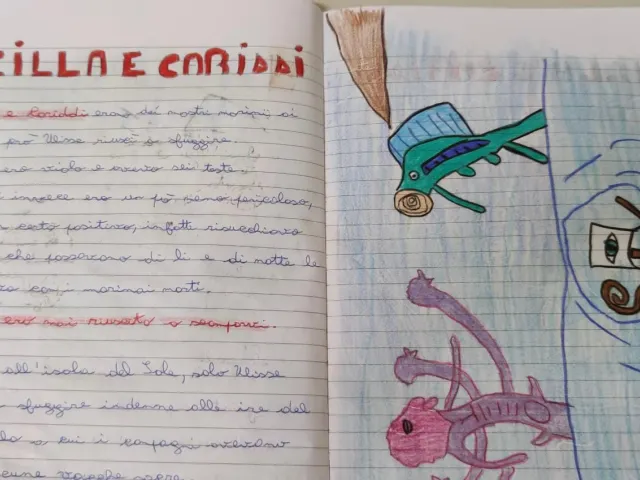 CILLA E CARIDDI
e Cariddi erano dei mostri marini, ai
però Ulisse riuscì a sfuggire.
era viola e aveva sei teste.
invece era un pò meno pericoloso,
certo positivo, infatti risucchiava
che passavano di lì e di notte le
marinai morti.
era mai riuscito a scamparci.
all'isola del Sole, solo Ulisse
sfuggire indenne alle ire del
a cui i compagni avevano
vacche sacre